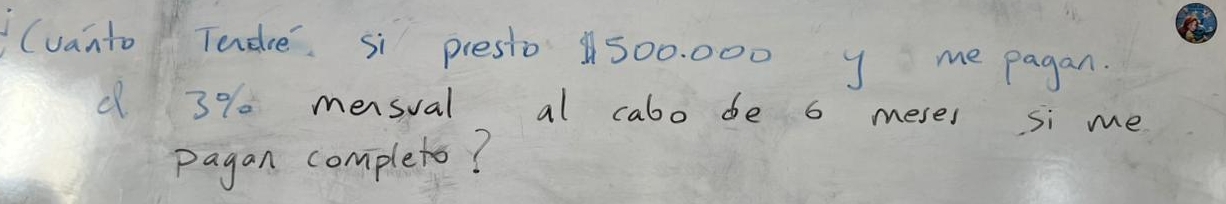 ¿Cuánto Tendré. si presto $500.000 y me pagan.
el 3% mensual al cabo de 6 meses si me
pagan completo?